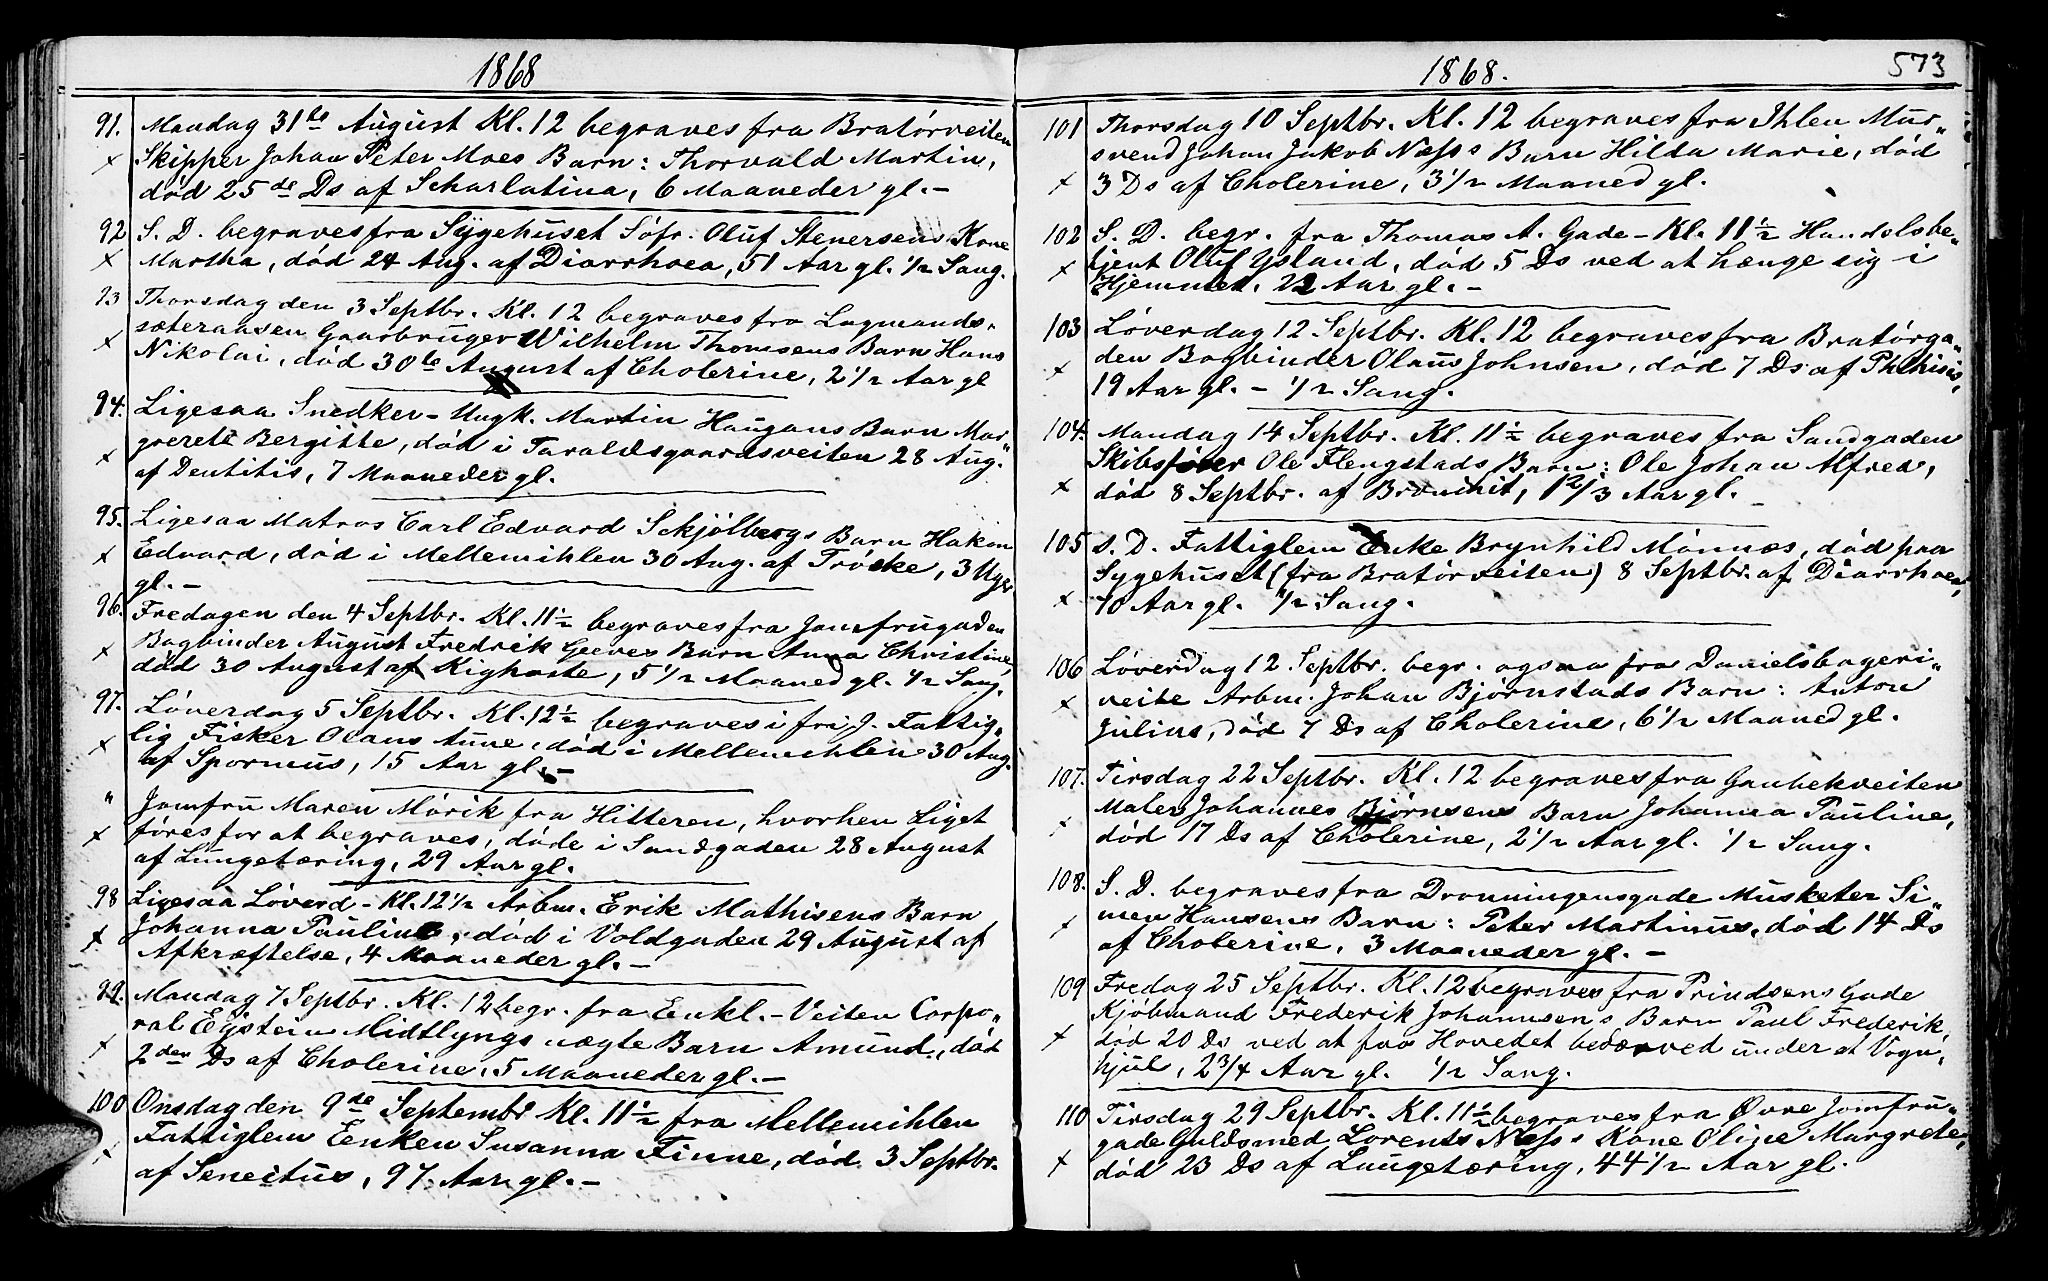 1868
91. Mandag 31te August Kl. 12 begraves fra Bratörveiten
Skipper Johan Peter Moes Barn: Thorvald Martin,
död 25de Ds af Scharlatina, 6 Maaneder gl. –
92 S. D. begraves fra Sygehuset Söfr. Oluf Stenersens Kone
Martha, död 24 Aug. af Diarrhoea, 51 Aar gl. 1/2 Sang.
93 Thorsdag den 3 Septbr. Kl. 12 begraves fra Lagmands-
sæteraasen Gaarbruger Wilhelm Thomsens Barn Hans
Nikolai, död 30te August af Cholerine, 2 1/2 Aar gl
94. Ligesaa Snedker – Ungk. Martin Haugans Barn Mar-
grerete Bergitte, död i Taraldsgaardsveiten 28 Aug.
af Dentitis, 7 Maaneder gl.
95. Ligesaa Matros Carl Edvard Sckjölbergs Barn Hakon
Edvard, död i Mellemihlen 30 Aug. af Tröske, 3 Uger
gl. –
96. Fredagen den 4 Septbr. Kl. 11 1/2 begraves fra Jomfrugaden
Bogbinder August Fredrik Geeves Barn Anna Christine,
död 30 August af Kighoste, 5 1/2 Maaned gl. 1/2 Sang.
97. Löverdag 5 Septbr. Kl. 12 1/2 begraves i fri J. Fattig-
lig Fisker Olaus Aune, död i Mellemihlen 30 Aug.
af Spormus, 15 Aar gl. –
" Jomfru Maren Mörik fra Hitteren, hvorhen Liget
föres for at begraves, döde i Sandgaden 28 August
af Lungetæring, 29 Aar gl.
98 Ligesaa Löverd – Kl. 12 1/2 Arbm. Erik Mathisens Barn
Johanna Pauline, död i Voldgaden 29 August af
Afkræftelse, 4 Maaneder gl. –
99. Mandag 7 Septbr. Kl. 12 begr. fra Enkl. – Veiten Corpo-
ral Eystein Midtlyngs uægte Barn Amund, död
2den Ds af Cholerine, 5 Maaneder gl. –
100 Onsdag den 9de Septembr Kl. 11 1/2 fra Mellemihlen
Fattiglem Eenken Susanna Finne, död 3 Septbr.
af Senectus, 97 Aar gl. –
1868.
573
101 Thorsdag 10 Septbr. Kl. 12 begraves fra Ihlen Mur-
svend Johan Jakob Næss's Barn Hilda Marie, död
3 Ds af Cholerine, 3 1/2 Maaned gl.
102 S. D. begr. fra Thomas A. Gade – Kl. 11 1/2 Handelsbe-
tjent Oluf Ysland, död 5 Ds ved at hænge sig i
Hjemmet, 22 Aar gl. –
103 Löverdag 12 Septbr. Kl. 12 begraves fra Bratörga-
den Bogbinder Olaus Johnsen, död 7 Ds af Phthisis,
19 Aar gl. – 1/2 Sang.
104. Mandag 14 Septbr. Kl. 11 1/2 begraves fra Sandgaden
Skibsförer Ole Flengstads Barn: Ole Johan Alfred,
död 8 Septbr. af Bronchit, 1 2/3 Aar gl.
105 S. D. Fattiglem Enke Brynhild Mönnæs, död paa
Sygehuset (fra Bratörveiten) 8 Septbr. af Diarrhoea,
70 Aar gl. 1/2 Sang.
106 Löverdag 12 Septbr. begr. ogsaa fra Danielsbageri-
veite Arbm. Johan Bjørnstads Barn: Anton
Julius, död 7 Ds af Cholerine, 6 1/2 Maaned gl.
107. Tirsdag 22 Septbr. Kl. 12 begraves fra Gaubekveiten
Maler Johannes Björnsens Barn Johanna Pauline,
död 17 Ds af Cholerine, 2 1/2 Aar gl. 1/2 Sang.
108. S. D. begraves fra Dronningensgade Musketer Si-
men Hansens Barn: Peter Martinus, död 14 Ds
af Cholerine, 3 Maaneder gl. –
109 Fredag 25 Septbr. Kl. 12 begraves fra Prindsens Gade
Kjöbmand Frederik Johannsens Barn Paul Frederik,
död 20 Ds ved at faa Hovedet bedærved under et Vogn-
hjul, 2 3/4 Aar gl. 1/2 Sang.
110 Tirsdag 29 Septbr. Kl. 11 1/2 begraves fra Övre Jomfru-
gade Guldsmed Lorents Næss's Kone Oline Margrete,
död 23 Ds af Laugetæring, 44 1/2 Aar gl.